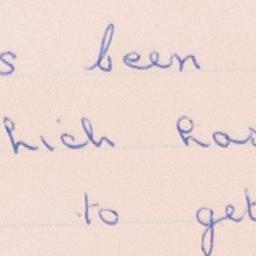 s been
hich has
to get